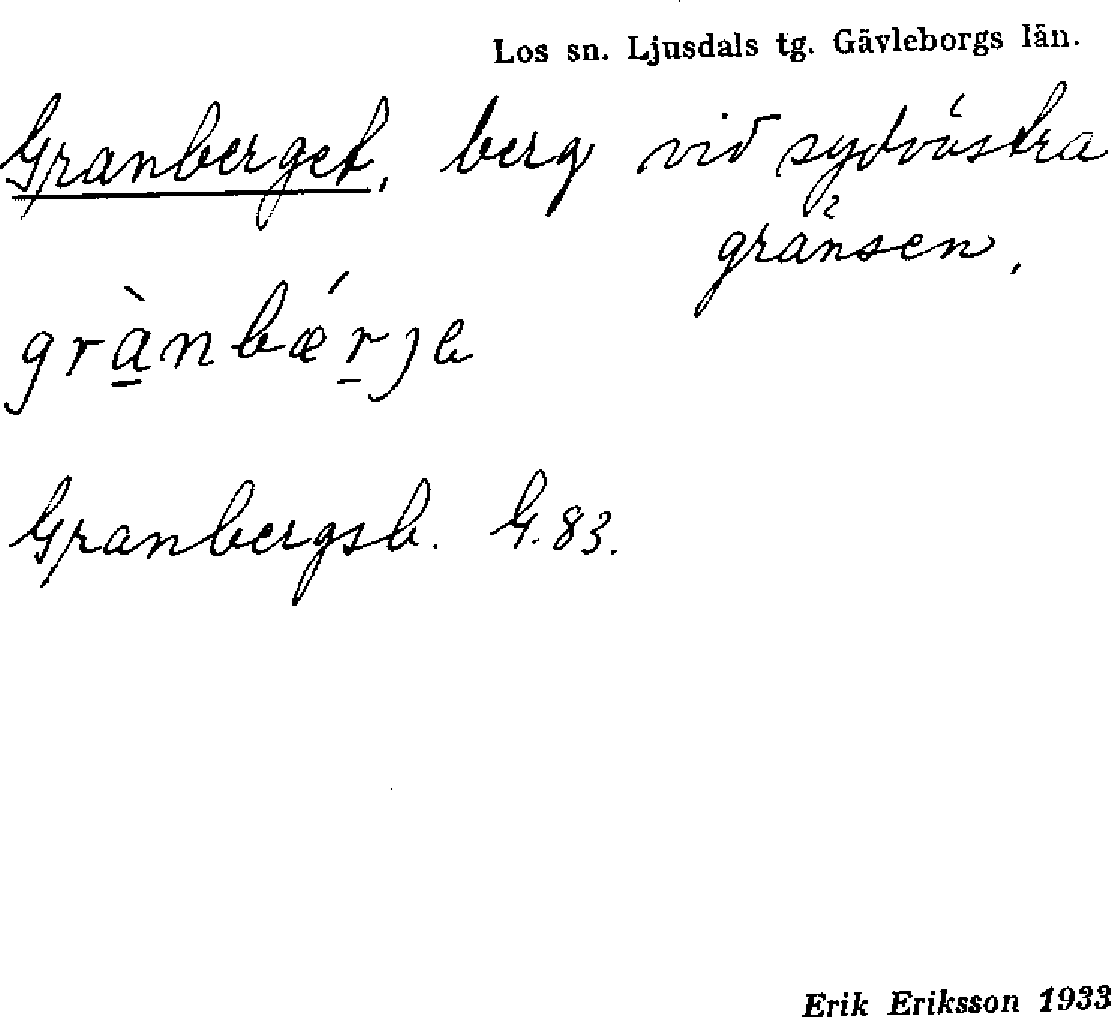 Los sn. Ljusdals tg. Gävleborgs län.
Granberget, berg vid sydvästra
gränsen.
grànbǽrje
Granbergsb. G. 83.
Erik Eriksson 1933